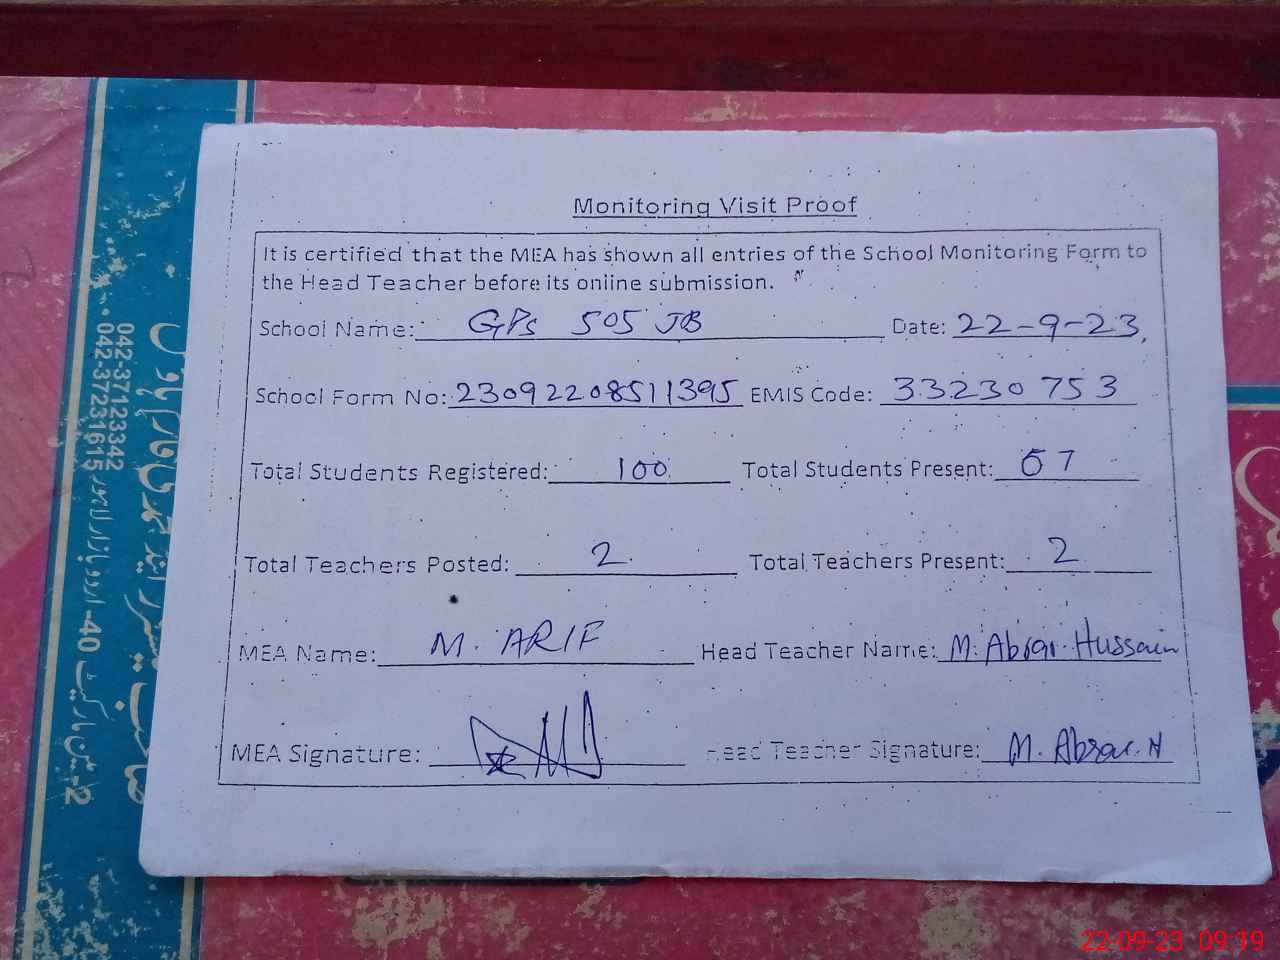 Monitoring Visit Proof
It is certified that the MEA has shown all entries of the School Monitoring Form to
the Head Teacher before its online submission.
School Name: GPs 505 JB Date: 22-9-23
School Form No: 23092208511395 EMIS Code: 33230753
Total Students Registered: 100 Total Students Present: 67
Total Teachers Posted: 2 Total Teachers Present: 2
MEA Name: M. ARIF Head Teacher Name: M. Abrar Hussain
MEA Signature: Head Teacher Signature: M. Abrar. H
042-37123342
042-37231615
22-09-23 09:19